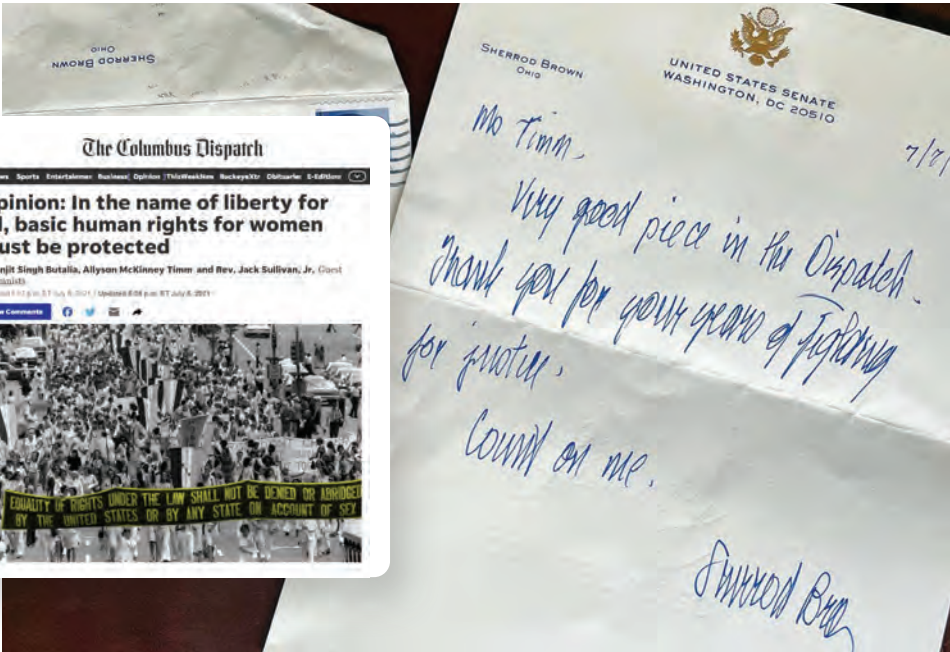 SHERROD BROWN
OHIO
The Columbus Dispatch
ws Sports Entertainmen Business Opinion ThisWeekNews BuckeyeXtra Obituaries E-Editions
pinion: In the name of liberty for
l, basic human rights for women
ust be protected
njit Singh Butalia, Allyson McKinney Timm and Rev. Jack Sullivan, Jr. Guest
umnists
ET July 8, 2021 | Updated ET July 8, 2021
w Comments
EQUALITY OF RIGHTS UNDER THE LAW SHALL NOT BE DENIED OR ABRIDGED
BY THE UNITED STATES OR BY ANY STATE ON ACCOUNT OF SEX
SHERROD BROWN
OHIO
UNITED STATES SENATE
WASHINGTON, DC 20510
Ms Timm,
Very good piece in the Dispatch.
Thank you for your years of fighting
for justice.
Count on me.
Sherrod Bro